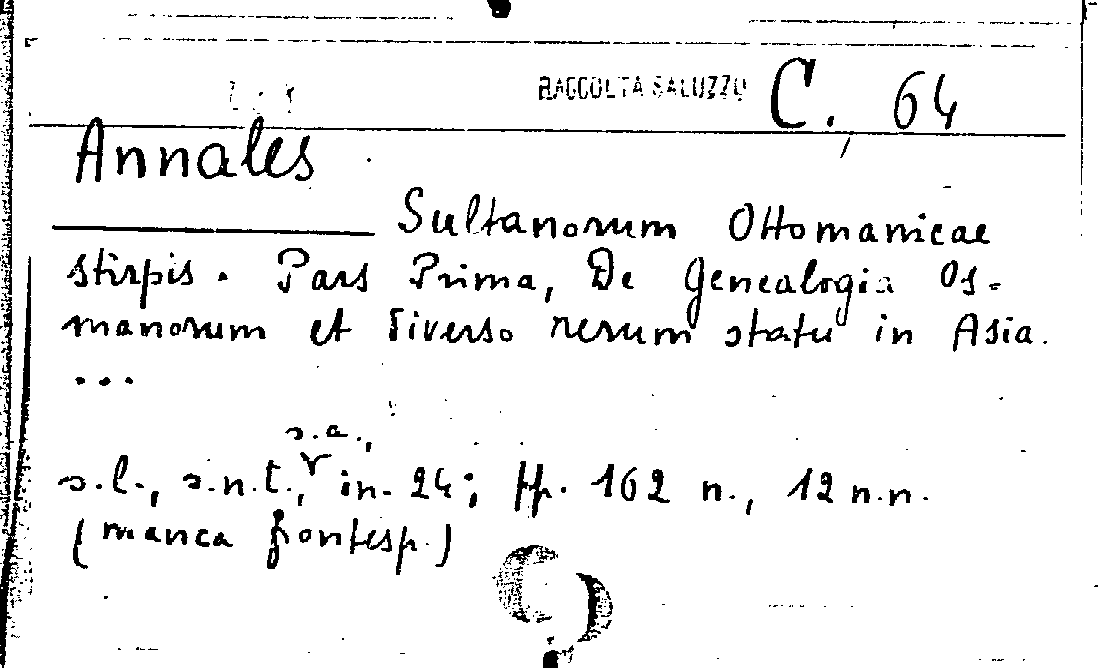 RACCOLTA SALUZZO C. 64
Annales
Sultanorum Ottomanicae
stirpis. Pars Prima, De Genealogia Os-
manorum et diverso rerum statu in Asia.
...
s.a.,
s.l., s.n.t., in-24; pp. 162 n., 12 n.n.
(manca frontesp.)